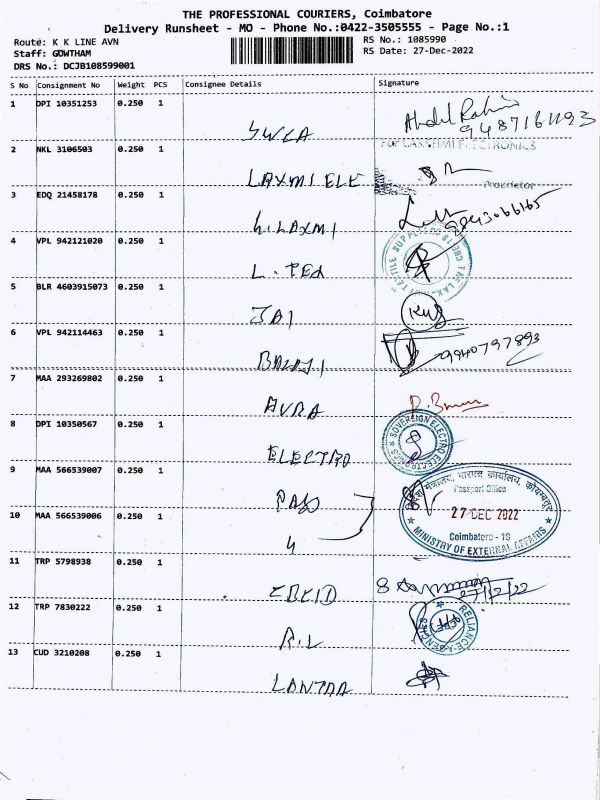 THE PROFESSIONAL COURIERS, Coimbatore
Delivery Runsheet - MO - Phone No.:0422-3505555 - Page No.:1
Route: K K LINE AVN
RS No.: 1085990
Staff: GOWTHAM
RS Date: 27-Dec-2022
DRS No.: DCJB108599001
S No Consignment No Weight PCS Consignee Details Signature
1 DPI 10351253 0.250 1
Abdul Rahim
9487161193
2 NKL 3106503 0.250 1
FOR LAXHMI ELECTRONICS
LAXMI ELE
Proprietor
3 EDQ 21458178 0.250 1
9843066165
LAXMI
4 VPL 942121020 0.250 1
TEXTILE SUPPLIERS
L. TEX
5 BLR 4603915073 0.250 1
JAI
6 VPL 942114463 0.250 1
9840797893
BALAJI
7 MAA 293269802 0.250 1
AVRA
8 DPI 10350567 0.250 1
SOVEREIGN ELECTRO
ELECTRO
9 MAA 566539007 0.250 1
पासपोर्ट कार्यालय, कोयम्बत्तूर
Passport Office
PASS
27 DEC 2022
10 MAA 566539006 0.250 1
Coimbatore - 18
MINISTRY OF EXTERNAL AFFAIRS
11 TRP 5798938 0.250 1
27/12/22
12 TRP 7830222 0.250 1
RELIANCE AGENCIES
R.L
13 CUD 3210208 0.250 1